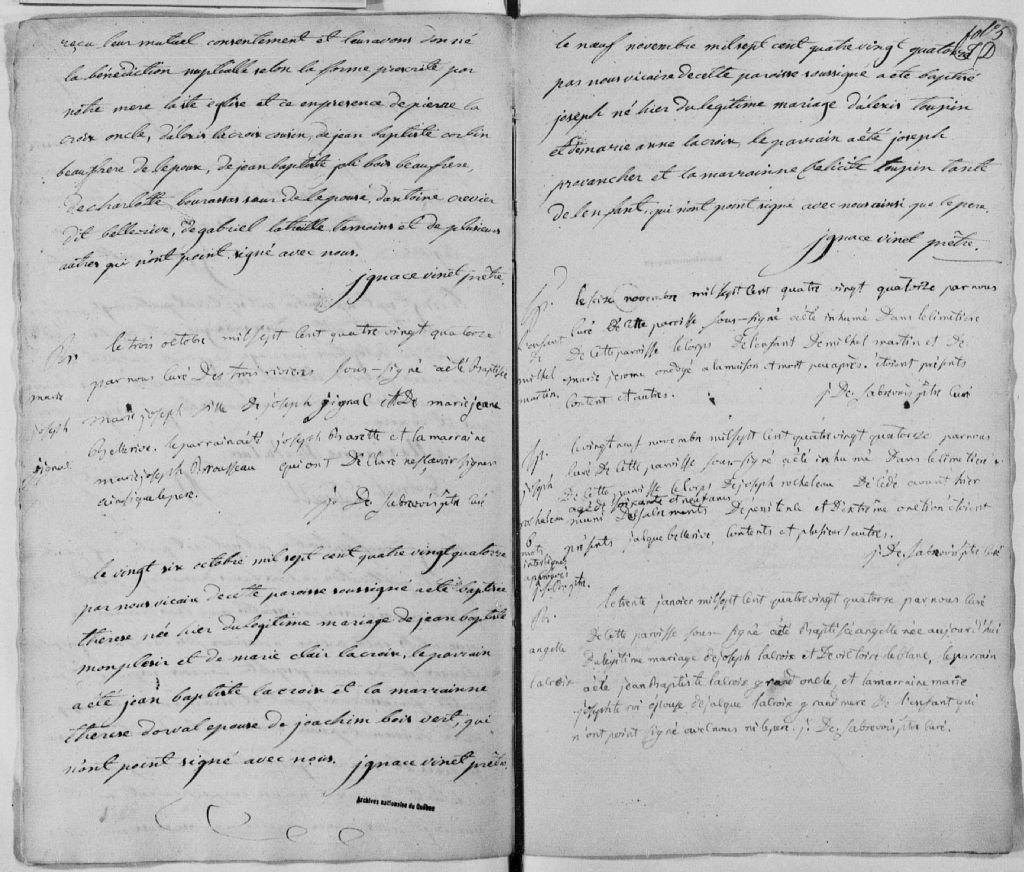 reçu leur mutuel consentement et leur avons donné
la bénédiction nuptialle selon la forme prescrite par
nôtre mere la ste église et ce en presence de pierre la
croix oncle, d'alexis lacroix cousin, de jean baptiste corbin
beaufrere de l'epoux, de jean baptiste joli bois beaufrere,
de charlotte bourassas sœur de l'epouse, d'antoine crevier
dit bellerive, de gabriel temoins et de plusieurs
autres qui n'ont point signé avec nous.
jgnace vinet prêtre.
Br
marie
joseph
jignac
le trois octobre mil sept Cent quatre vingt quatorze
par nous Curé Des trois rivieres sous-signé a été Baptisée
marie joseph fille De joseph jignal et De marie jeane
Bellerive. le parrain a été joseph Barette et la marraine
marie joseph Brousseau qui ont De Claré ne sçavoir signer
ainsi que le pere.
j. De Sabrevois ptre Curé
le vingt six octobre mil sept cent quatre vingt quatorze
par nous vicaire de cette paroisse soussigné a eté baptisée
therese née hier du legitime mariage de jean baptiste
monplesir et de marie clair lacroix, le parrain
a eté jean baptiste lacroix et la marrainne
therese dorval epouse de joachim bois vert, qui
n'ont point signé avec nous. jgnace vinet prêtre
Archives nationales du Québec
fol 5
le nœuf novembre mil sept cent quatre vingt quatorze
par nous vicaire de cette paroisse soussigné a eté baptisé
joseph né hier du legitime mariage d'alexis toupin
et de marie anne lacroix, le parrain a été joseph
provancher et la marrainne felicité toupin tante
de l'enfant, qui n'ont point signé avec nous ainsi que le pere.
jgnace vinet prêtre.
S.
l'enfant
de
mithel
martin.
le seize novembre mil sept Cent quatre vingt quatorze par nous
Curé de Cette parroisse sous-signé a été inhumé Dans le Cimetière
De Cette parroisse le Corps De l'enfant De mithel martin et De
marie jerome ondoyé a la maison et mort peu après. étoient présents
Content et autres.
j. De Sabrevois ptre Curé
S.
joseph
rocheleau
6
mots
interlignes
approuvés
le vingt neuf novembre mil sept Cent quatre vingt quatorze par nous
Curé De Cette parroisse sous-signé a été inhumé Dans le Cimetiere
De Cette parroisse le Corps De joseph rocheleau Décédé avant hier
agé de soixante et neuf ans
muni Des sacrements De penitence et D'extrème onction étoient
présents jaque bellerive, Contents et plusieurs autres.
j. De Sabrevois ptre Curé
Br.
angelle
lacroix
le trente janvier mil sept Cent quatre vingt quatorze par nous Curé
De Cette parroisse sous-signé a été Baptisée angelle née aujourd'hui
Du légitime mariage De joseph lacroix et De victoire leblanc, le parrain
a été jean Baptiste lacroix grand oncle, et la marraine marie
josephte roi épouse De jaque lacroix grand mere De l'enfant qui
n'ont point signé avec nous ni le pere. j. De Sabrevois ptre Curé.